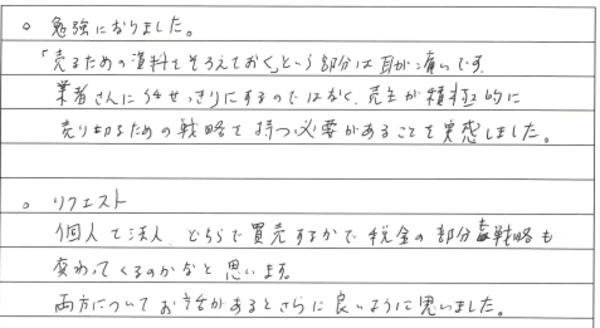 ○ 勉強になりました。
「売るための資料をそろえておく」という部分は耳が痛いです。
業者さんに任せっきりにするのではなく、売主が積極的に
売り切るための戦略を持つ必要があることを実感しました。
○ リクエスト
個人と法人、どちらで買売するかで税金の部分 戦略も
変わってくるのかなと思います。
両方についてお話があるとさらに良いように思いました。